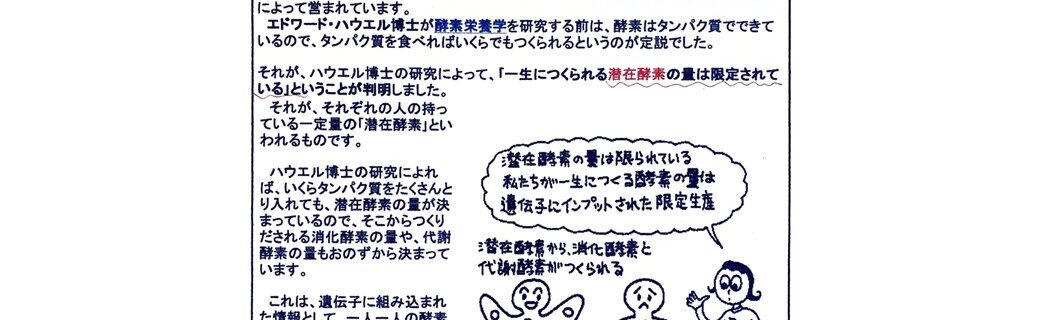 によって営まれています。
エドワード・ハウエル博士が酵素栄養学を研究する前は、酵素はタンパク質でできて
いるので、タンパク質を食べればいくらでもつくられるというのが定説でした。
それが、ハウエル博士の研究によって、「一生につくられる潜在酵素の量は限定されて
いる」ということが判明しました。
それが、それぞれの人の持っ
ている一定量の「潜在酵素」とい
われるものです。
ハウエル博士の研究によれ
ば、いくらタンパク質をたくさんと
り入れても、潜在酵素の量が決
まっているので、そこからつくり
だされる消化酵素の量や、代謝
酵素の量もおのずから決まって
います。
これは、遺伝子に組み込まれ
た情報として、一人一人の酵素
潜在酵素の量は限られている
私たちが一生につくる酵素の量は
遺伝子にインプットされた限定生産
潜在酵素から、消化酵素と
代謝酵素がつくられる